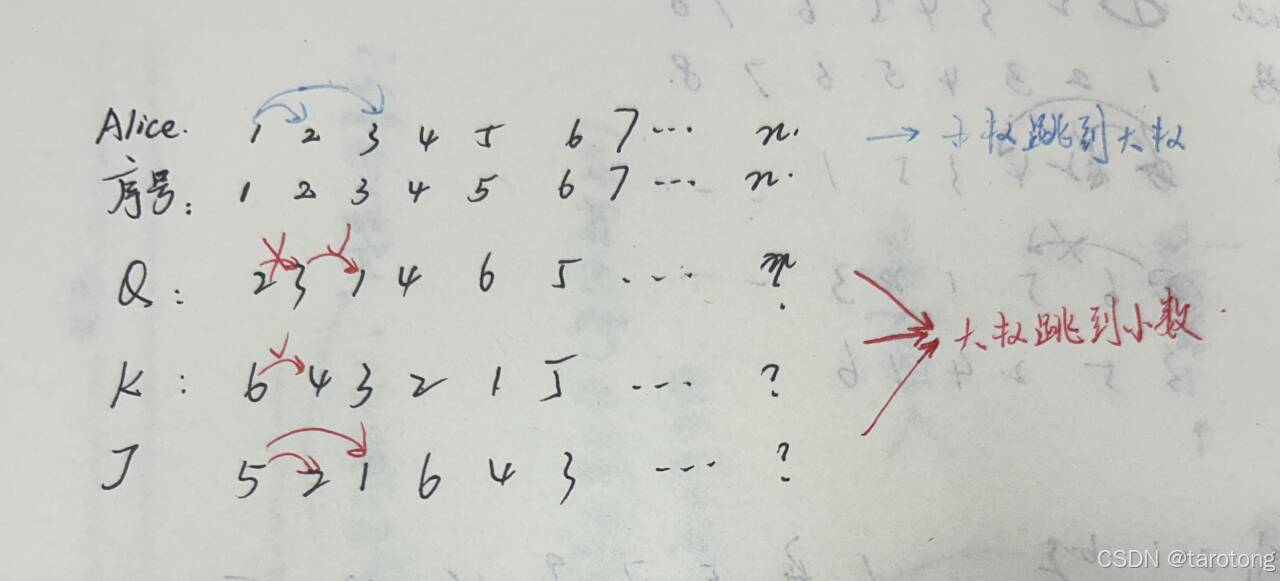 Alice. 1 2 3 4 5 6 7 ... n. → 小权跳到大权
序号: 1 2 3 4 5 6 7 ... n.
Q: 2 3 1 4 6 5 ... ?
K: 6 4 3 2 1 5 ... ?
大权跳到小数.
J 5 2 1 6 4 3 ... ?
CSDN @tarotong